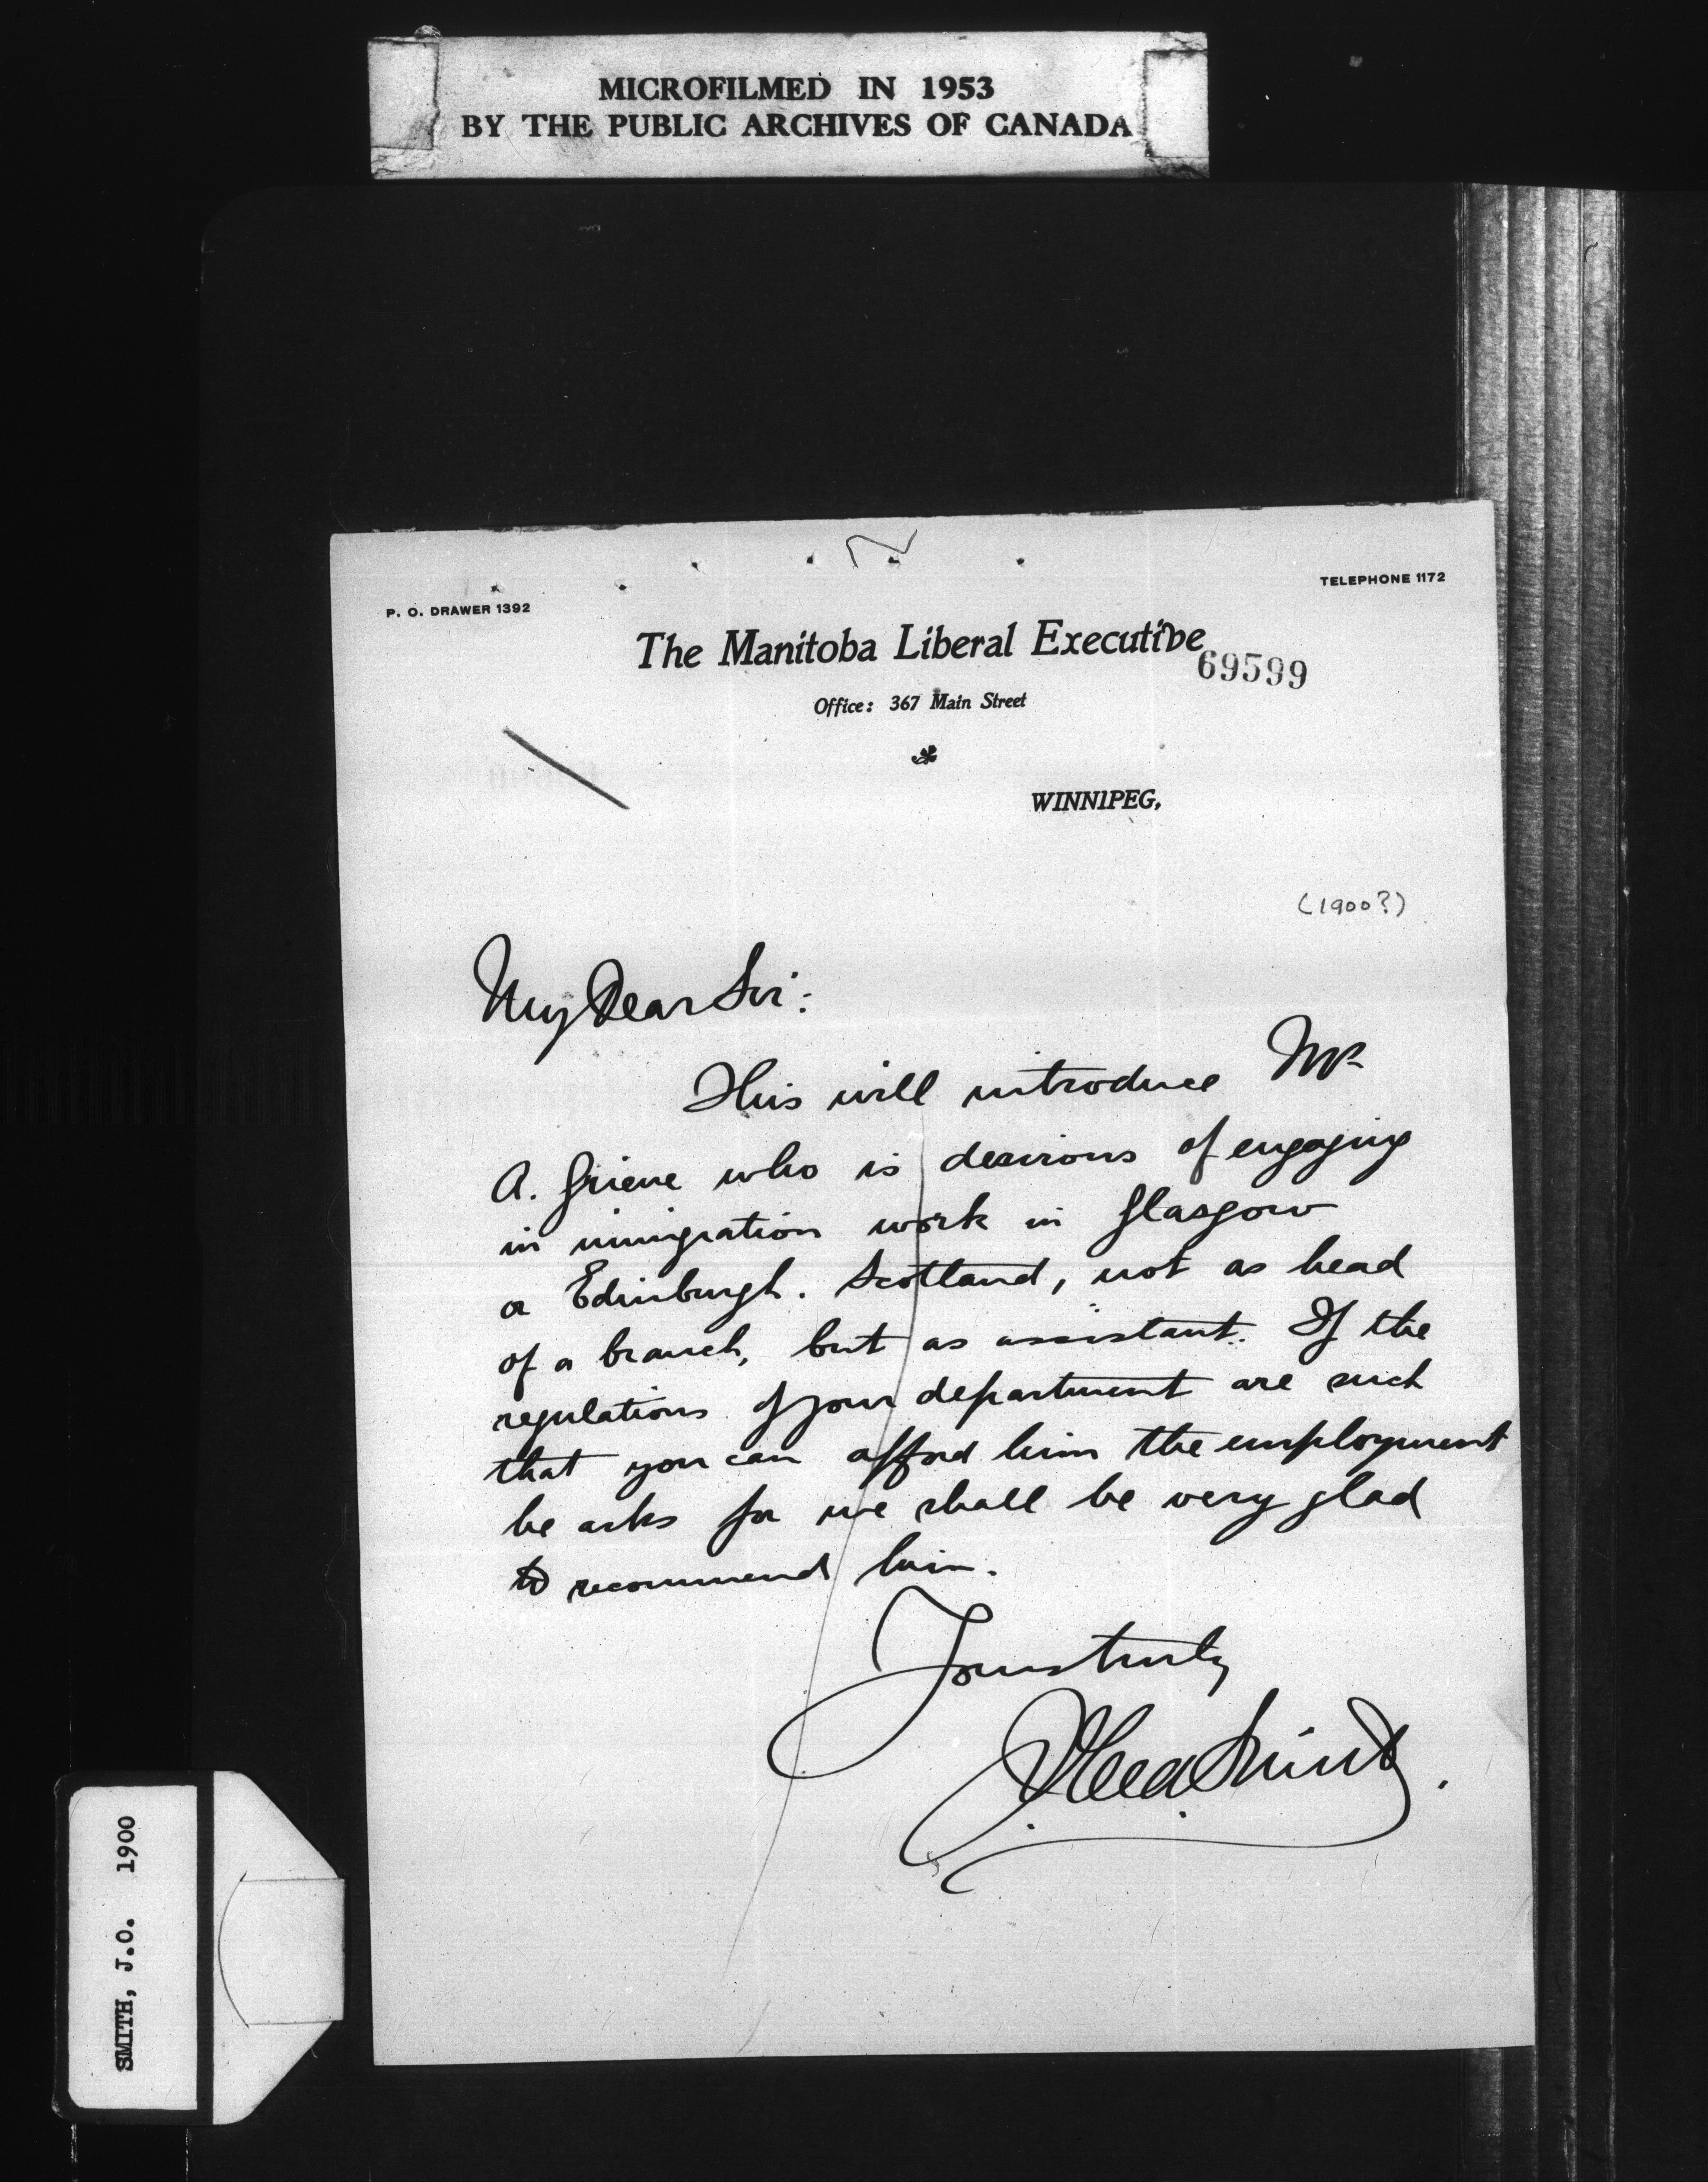 MICROFILMED IN 1953
BY THE PUBLIC ARCHIVES OF CANADA
P. O. DRAWER 1392
TELEPHONE 1172
The Manitoba Liberal Executive
69599
Office: 367 Main Street
WINNIPEG,
(1900?)
My Dear Sir:
This will introduce Mr
A. Grieve who is desirious of engaging
in immigration work in Glasgow
or Edinburgh. Scotland, not as head
of a branch, but as assistant. If the
regulations of your department are such
that you can afford him the employment
he asks for we shall be very glad
to recommend him.
Yours truly
Smith
SMITH, J.O. 1900